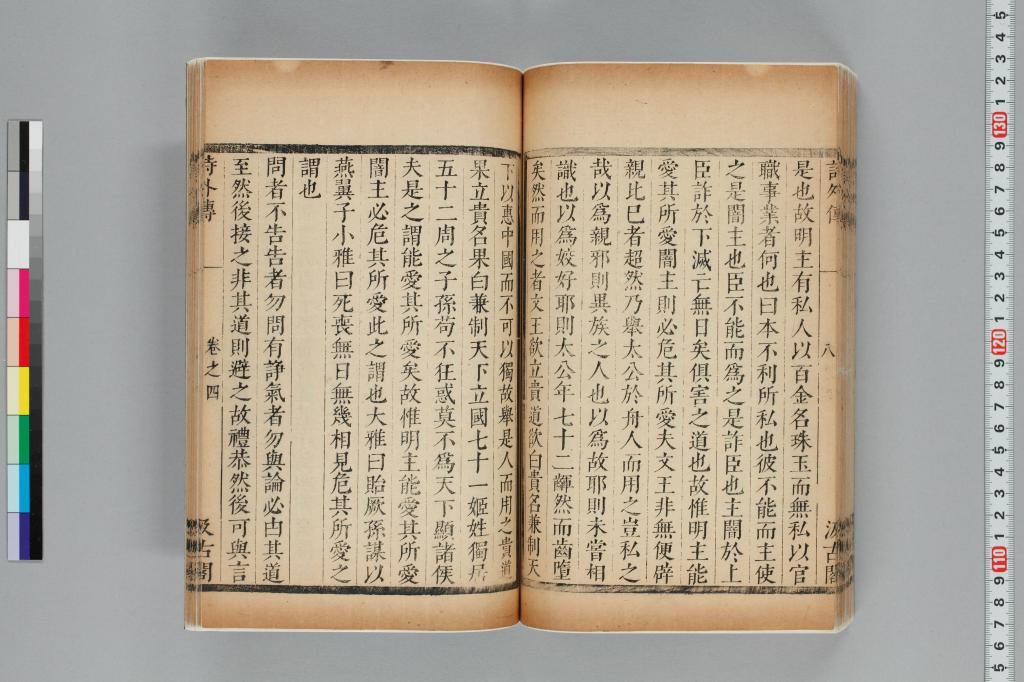 詩外傳
八
汲古閣
是也故明主有私人以百金名珠玉而無私以官
職事業者何也曰本不利所私也彼不能而主使
之是闇主也臣不能而爲之是詐臣也主闇於上
臣詐於下滅亡無日矣俱害之道也故惟明主能
愛其所愛闇主則必危其所愛夫文王非無便辟
親比已者超然乃舉太公於舟人而用之豈私之
哉以爲親邪則異族之人也以爲故耶則未嘗相
識也以爲姣好耶則太公年七十二齳然而齒墮
矣然而用之者文王欲立貴道欲白貴名兼制天
下以惠中國而不可以獨故舉是人而用之貴道
果立貴名果白兼制天下立國七十一姬姓獨居
五十二周之子孫苟不狂惑莫不爲天下顯諸侯
夫是之謂能愛其所愛矣故惟明主能愛其所愛
闇主必危其所愛此之謂也大雅曰貽厥孫謀以
燕翼子小雅曰死喪無日無幾相見危其所愛之
謂也
問者不告告者勿問有諍氣者勿與論必由其道
至然後接之非其道則避之故禮恭然後可與言
詩外傳
卷之四
汲古閣
5 4 3 2 1 130 9 8 7 6 5 4 3 2 1 120 9 8 7 6 5 4 3 2 1 110 9 8 7 6 5